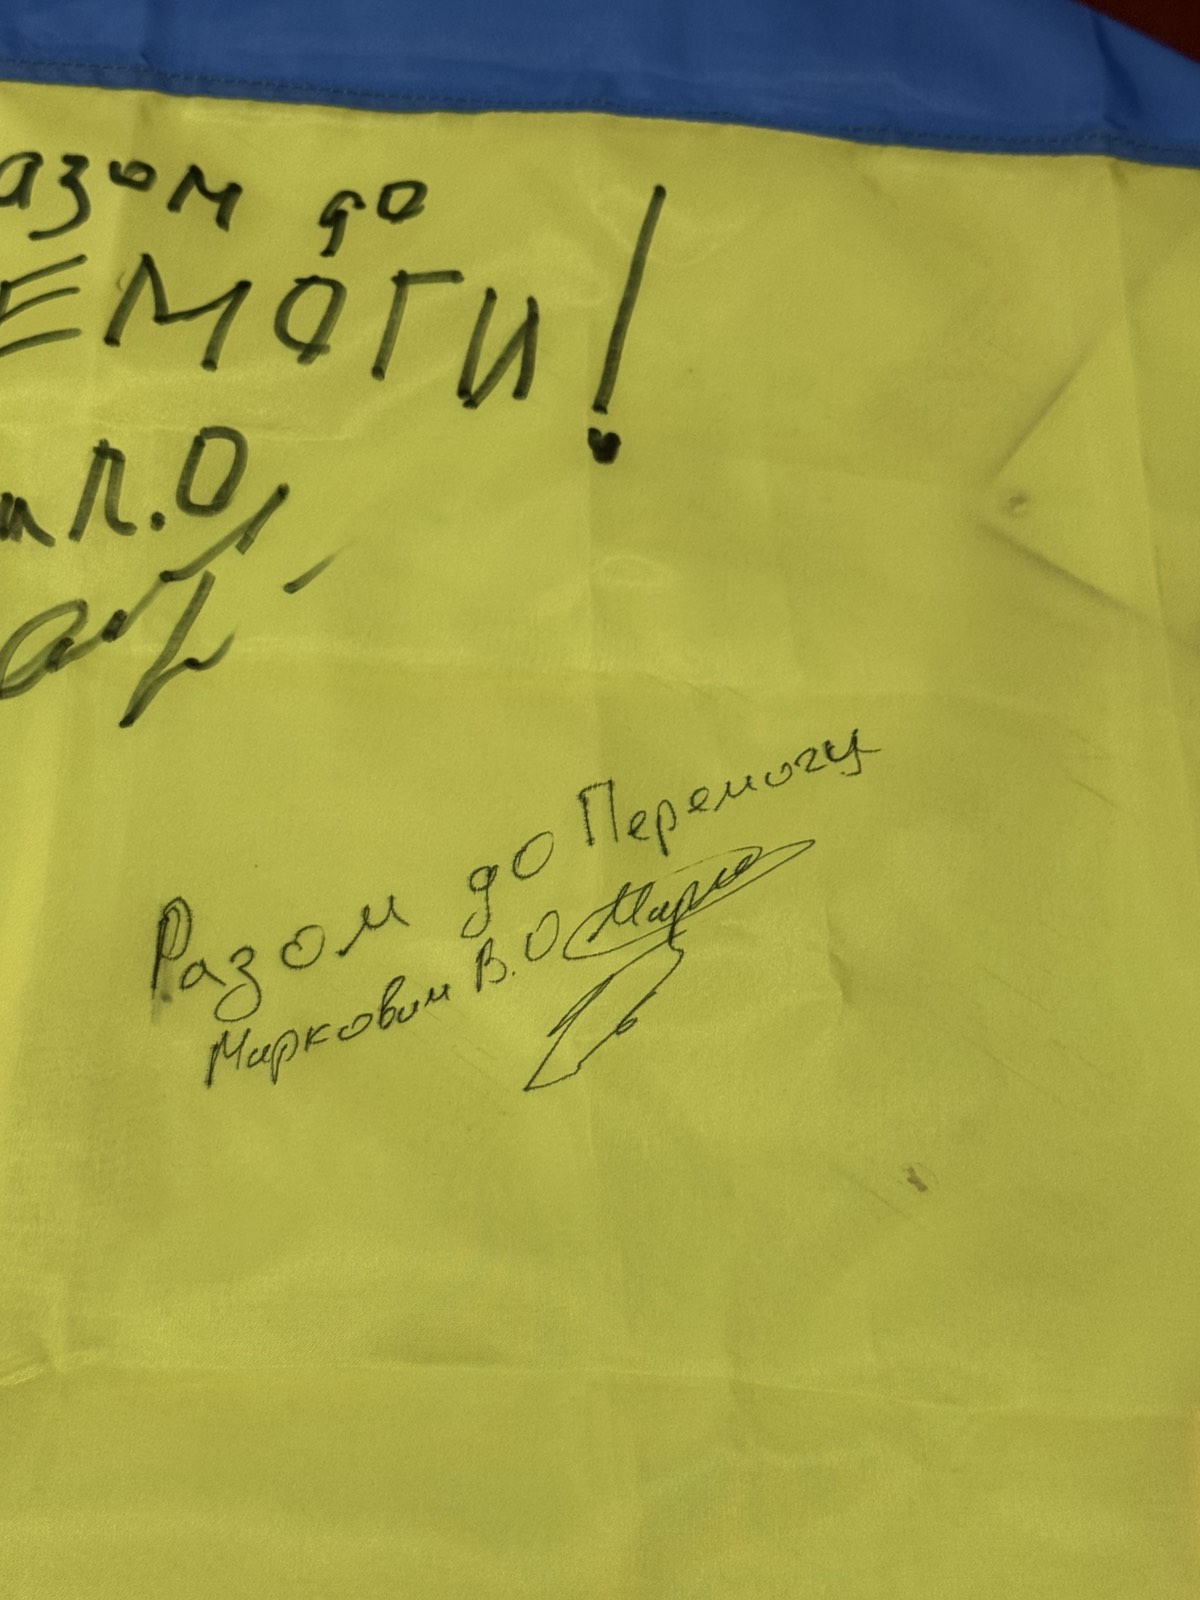 азом до
ЕМОГИ!
п.О,
Разом до Перемогу
Маркович В.О